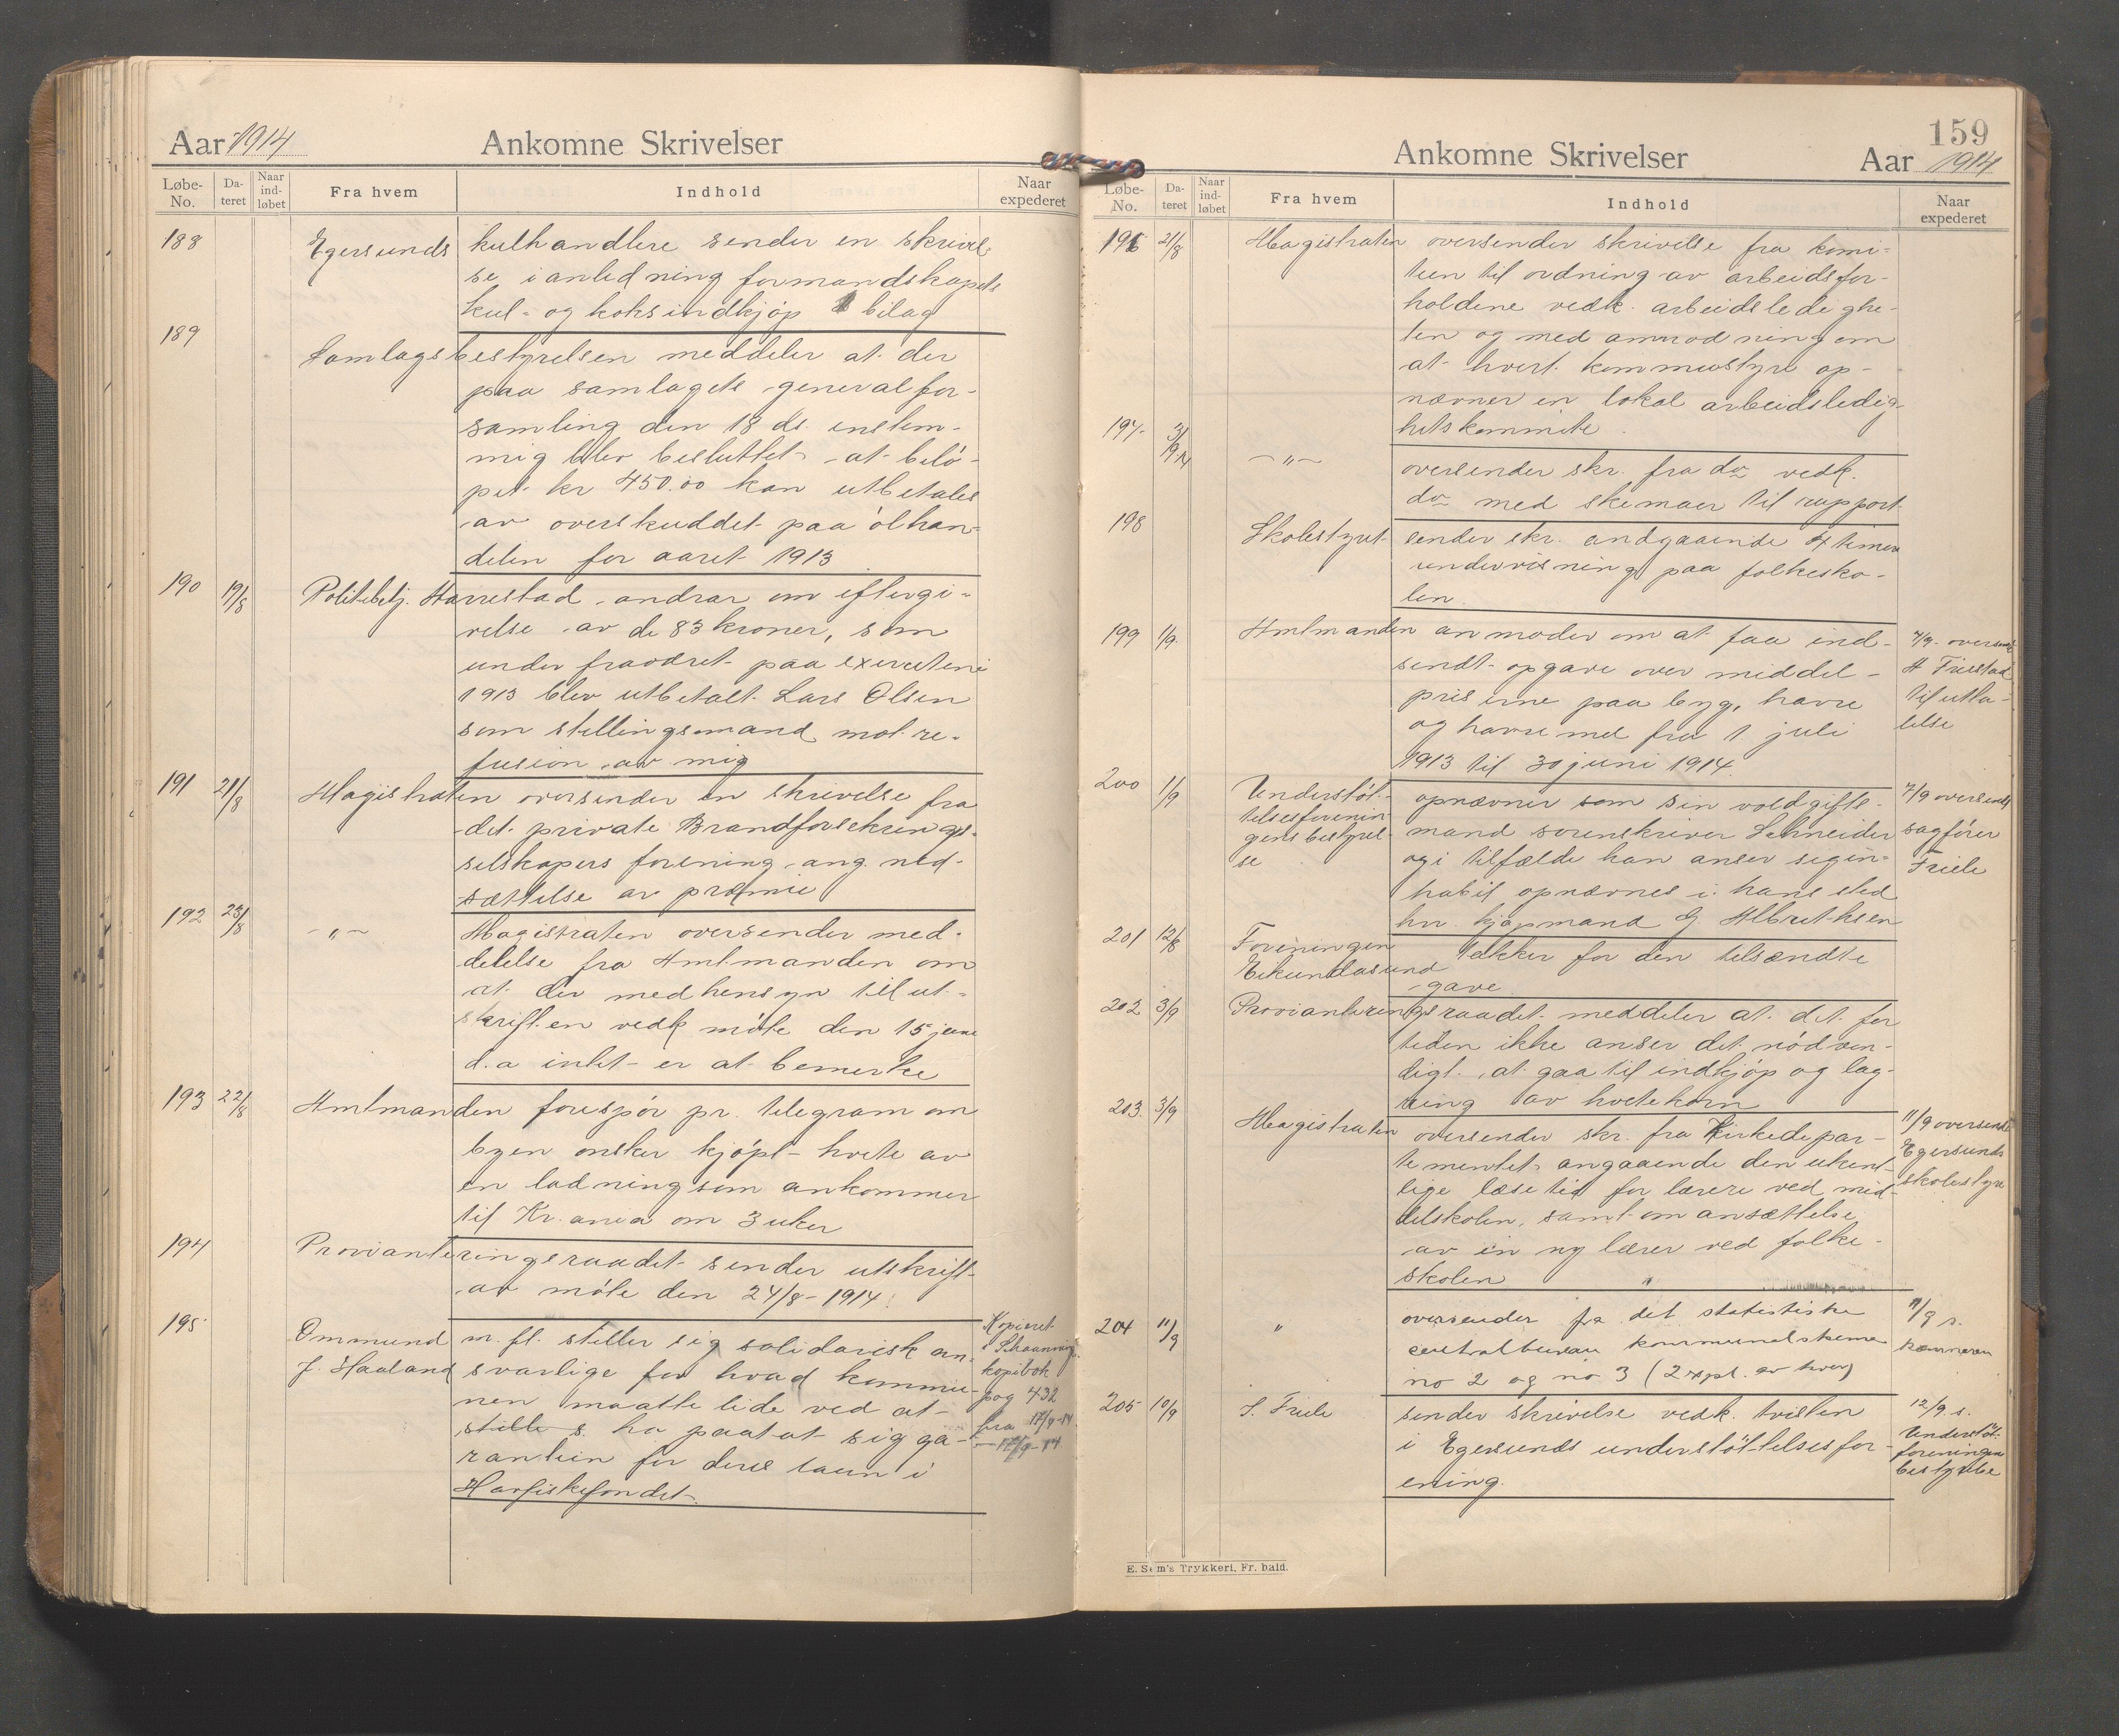 Aar 1914 Ankomne Skrivelser
Løbe-No. Da-teret Naar ind-løbet Fra hvem Indhold Naar expederet
188 Egersunds kulhandlere sender en skrivel-
se i anledning formandskapets
kul- og koksindkjøp 1 bilag
189 Samlagsbestyrelsen meddeler at der
paa samlagets generalfor-
samling den 18 ds. enstem-
mig blev besluttet at belø-
pet kr 450.00 kan utbetales
av overskuddet paa ølhan-
delen for aaret 1913
190 19/8 Politibetj. Harrestad andrar om eftergi-
velse av de 83 kroner, som
under fraværet paa exercitien i
1913 blev utbetalt Lars Olsen
som stillingsmand mot re-
fusion av mig
191 21/8 Magistraten oversender en skrivelse fra
det private Brandforsekrings-
selskapers forening ang. ned-
sættelse av præmie
192 23/8 -"- Magistraten oversender med-
delelse fra Amtmanden om
at der medhensyn til ut-
skriften vedk møte den 15 june
d.a intet er at bemerke
193 22/8 Amtmanden forespør pr. telegram om
byen ønsker kjøpt hvete av
en ladning som ankommer
til Kr.ania om 3 uker
194 Provianteringsraadet sender utskrift
av møte den 24/8-1914.
195 Ommund m. fl. stiller sig solidarisk an-
J. Haaland svarlige for hvad kommu-
nen maatte lide ved at
stille s. ha paatat sig ga-
rantien for deres laan i
Havfiskefondet.
Kopieret
i Schaanning
kopibok
pag 432
fra 17/9-14
— 17/9-14
159
Ankomne Skrivelser Aar 1914
Løbe-No. Da-teret Naar ind-løbet Fra hvem Indhold Naar expederet
196 21/8 Magistraten oversender skrivelse fra komi-
teen til ordning av arbeidsfor-
holdene vedk. arbeidsledighe-
ten og med anmodning om
at hvert kommunestyre op-
nævner en lokal arbeidsledig-
hetskommite.
197 3/9 14 -"- oversender skr. fra do vedk.
do med skemaer til rapport
198 Skolestyret sender skr. andgaaende 4 timers
undervisning paa folkesko-
len
199 1/9 Amtmanden anmoder om at faa ind-
sendt opgave over middel-
priserne paa byg, havre
og havremel fra 1 juli
1913 til 30 juni 1914.
7/9 oversendt
A Friestad
til utta-
lelse
200 1/9 Understøt- opnævner som sin voldgifts-
telsesforenin- mand sorenskriver Schneider
gens bestyrel- og i tilfælde han anser sig in-
se habil opnævnes i hans sted
hr kjøpmand G Albrethsen
7/9 oversendt
sagfører
Friele
201 12/8 Foreningen takker for den tilsændte
Eikundasund gave
202 3/9 Provianteringsraadet meddeler at det for
tiden ikke anser det nødven-
digt at gaa til indkjøp og lag-
ring av hvetekorn
203 3/9 Magistraten oversender skr. fra Kirkedepar-
tementet angaaende den ukent-
lige læsetid for lærere ved mid-
delskolen, samt om ansættelse
av en ny lærer ved folke-
skolen
11/9 oversendt
Egersunds
skolestyre
204 11/9 " oversender fra det statistiske
centralbureau kommunalskema
no 2 og no 3 (2 expl. av hver)
11/9 s.
kæmneren
205 10/9 S. Friele sender skrivelse vedk. tvisten
i Egersunds understøttelsesfor-
ening.
12/9 s.
Understøt.
foreningens
bestyrelse
E. Sem's Trykkeri, Fr. hald.